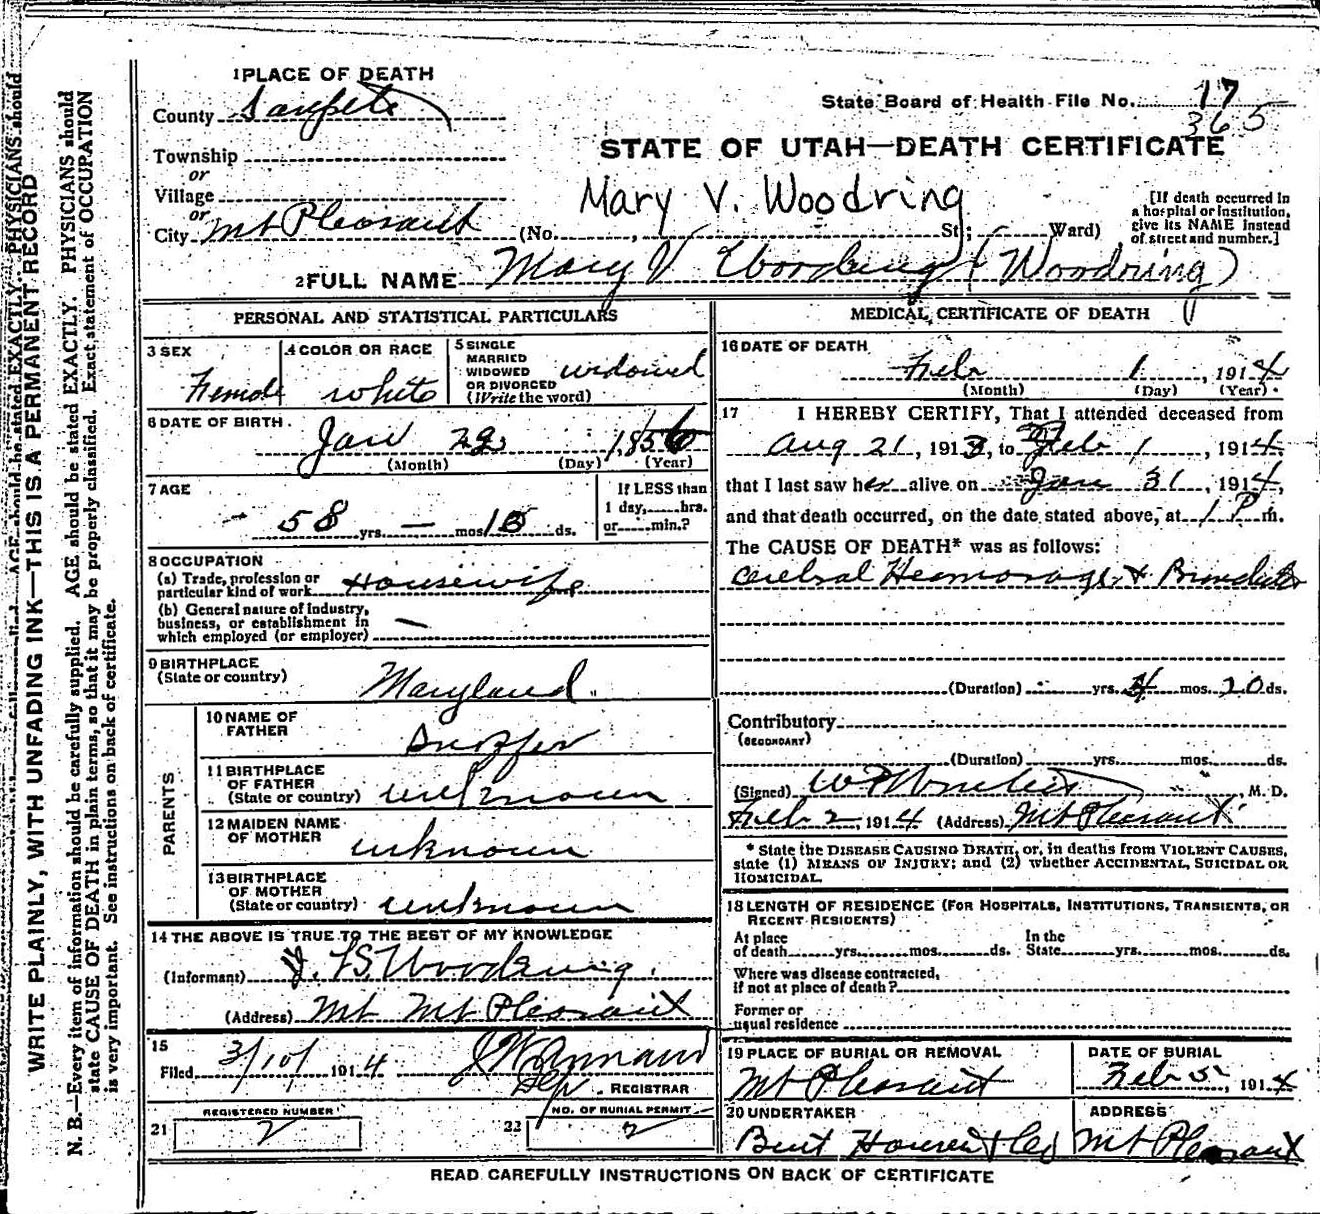 WRITE PLAINLY, WITH UNFADING INK—THIS IS A PERMANENT RECORD
N. B.—Every item of information should be carefully supplied. AGE should be stated EXACTLY. PHYSICIANS should
state CAUSE OF DEATH in plain terms, so that it may be properly classified. Exact statement of OCCUPATION
is very important. See instructions on back of certificate.
1 PLACE OF DEATH
County Sanpete
State Board of Health File No. 17
365
Township
or
Village
or
City Mt Pleasant
STATE OF UTAH—DEATH CERTIFICATE
Mary V. Woodring
(No. , St.; Ward)
[If death occurred in
a hospital or institution,
give its NAME instead
of street and number.]
2 FULL NAME Mary V Woodring (Woodring)
PERSONAL AND STATISTICAL PARTICULARS
3 SEX
Female
4 COLOR OR RACE
white
5 SINGLE
MARRIED
WIDOWED
OR DIVORCED
(Write the word)
widowed
6 DATE OF BIRTH
Jan 1856
(Month) (Day) (Year)
7 AGE
58 yrs. — mos. ds.
If LESS than
1 day, hrs.
or min.?
8 OCCUPATION
(a) Trade, profession or
particular kind of work Housewife
(b) General nature of industry,
business, or establishment in
which employed (or employer) —
9 BIRTHPLACE
(State or country)
Maryland
PARENTS
10 NAME OF
FATHER
11 BIRTHPLACE
OF FATHER
(State or country) unknown
12 MAIDEN NAME
OF MOTHER
unknown
13 BIRTHPLACE
OF MOTHER
(State or country) unknown
14 THE ABOVE IS TRUE TO THE BEST OF MY KNOWLEDGE
(Informant) Woodring
(Address) Mt Mt Pleasant
15
Filed 3/10/ 1914
Dep. REGISTRAR
REGISTERED NUMBER
21 2
NO. OF BURIAL PERMIT
22 2
MEDICAL CERTIFICATE OF DEATH
16 DATE OF DEATH
Feb 1, 1914
(Month) (Day) (Year)
17 I HEREBY CERTIFY, That I attended deceased from
Aug 21, 1913, to Feb 1, 1914,
that I last saw her alive on Jan 31, 1914,
and that death occurred, on the date stated above, at 1 P m.
The CAUSE OF DEATH* was as follows:
Cerebral Hemorage & Bronchitis
(Duration) yrs. 4 mos. 20 ds.
Contributory
(SECONDARY)
(Duration) yrs. mos. ds.
(Signed) , M. D.
Feb 2, 1914 (Address) Mt Pleasant
* State the DISEASE CAUSING DEATH, or, in deaths from VIOLENT CAUSES,
state (1) MEANS OF INJURY; and (2) whether ACCIDENTAL, SUICIDAL OR
HOMICIDAL.
18 LENGTH OF RESIDENCE (FOR HOSPITALS, INSTITUTIONS, TRANSIENTS, OR
RECENT RESIDENTS)
At place
of death yrs. mos. ds.
In the
State yrs. mos. ds.
Where was disease contracted,
if not at place of death?
Former or
usual residence
19 PLACE OF BURIAL OR REMOVAL
Mt Pleasant
DATE OF BURIAL
Feb 5, 1914
20 UNDERTAKER
ADDRESS
Mt Pleasant
READ CAREFULLY INSTRUCTIONS ON BACK OF CERTIFICATE